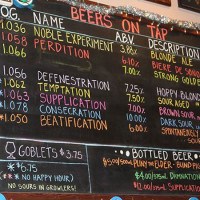 OG. NAME BEERS ON TAP
1.036 NOBLE EXPERIMENT 3.8% BLONDE ALE
1.058 PERDITION 6.10% BIERE DE
1.066 7.00% STRONG GOLD
ABV DESCRIPTION
1.056 DEFENESTRATION 7.25% HOPPY BLOND
1.062 TEMPTATION 7.5% SOUR AGED
1.063 SUPPLICATION 7% BROWN
*1.078 CONSECRATION 10.00% DARK SOUR
*1.050 BEATIFICATION 6.00% SPONTANEOUSLY
SOUR
GOBLETS $3.75
*6.75
(** NO HAPPY HOUR)
NO SOURS IN GROWLERS!
BOTTLED BEER
PLINY THE ELDER - BLIND PIG
DAMNATION
$12.00 SUPPLICATION